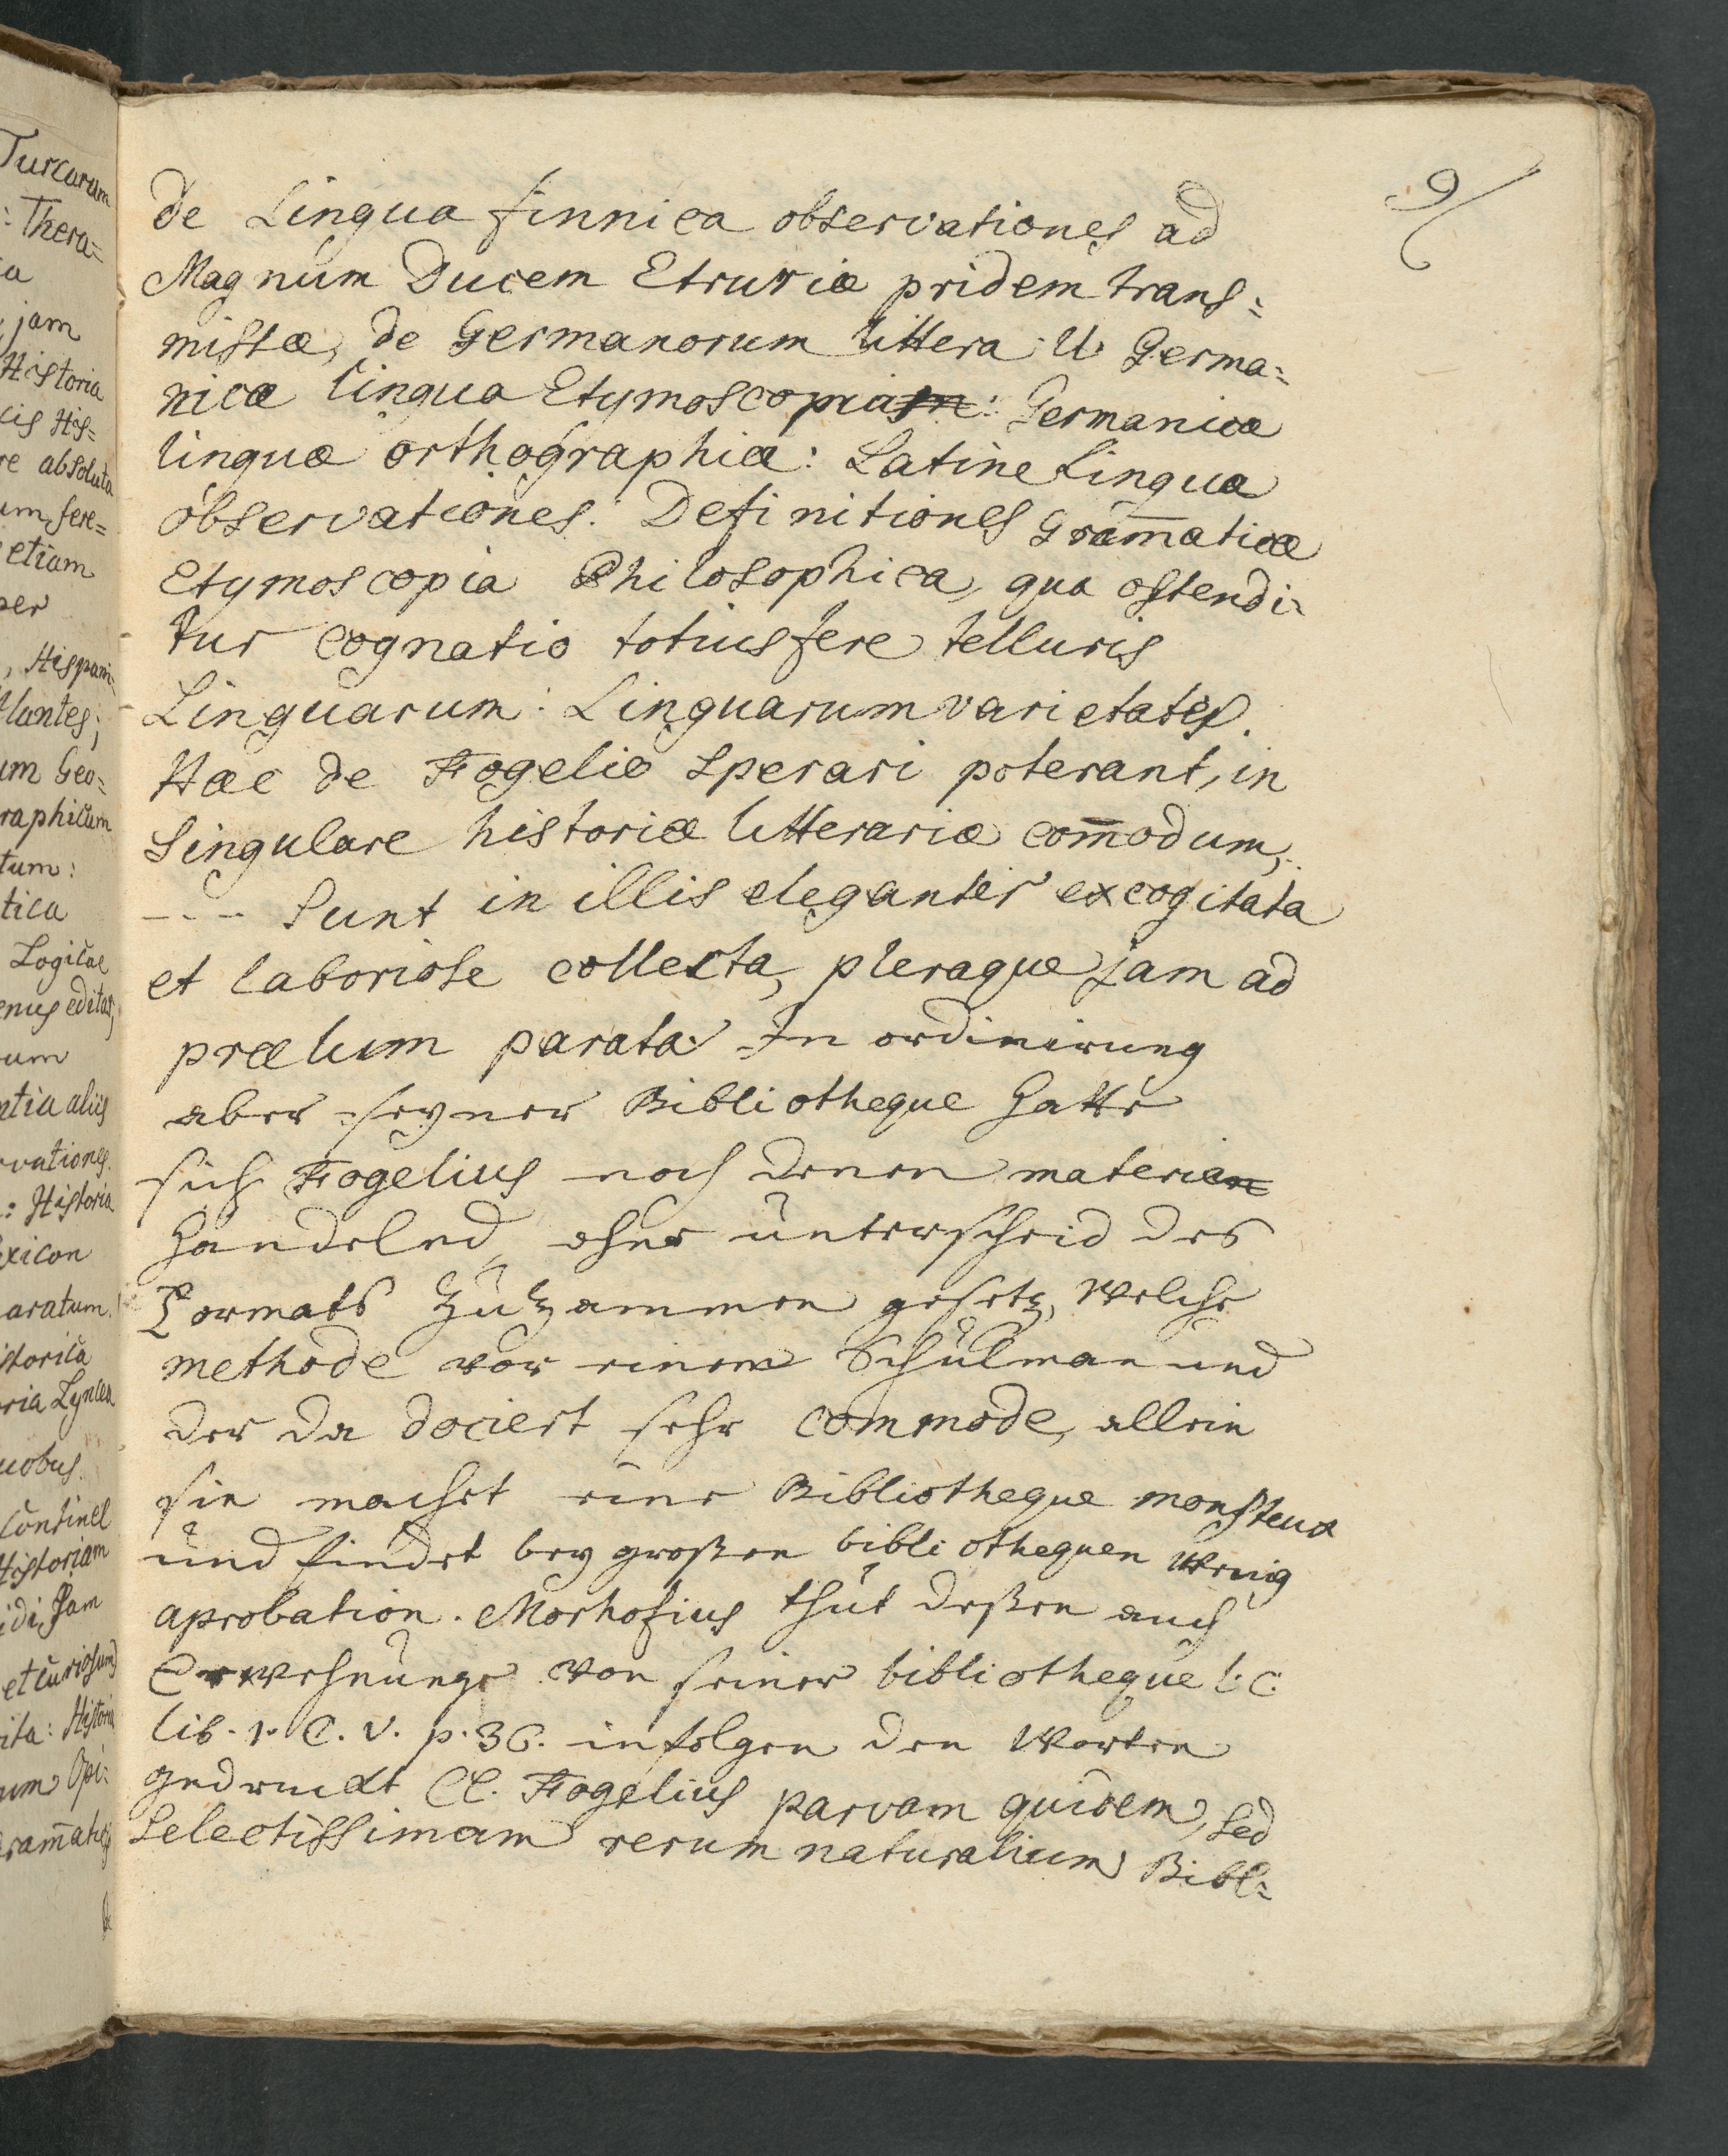 Turcarum
: Thera=
ca
jam
Historia
cis His=
re absoluta
um fere=
etiam
per
, Hispani=
Plantes;
um Geo=
raphicum
tum:
tica
Logicae
enus editas,
rum
ntia aliis
rvationes.
: Historia
exicon
aratum.
istorica
oria Lyncea
uobus.
Continet
Historiam
idi, Jam
et curiosum
ita: Historia
um Opi=
gram̄atic
9
de Lingua finnica observationes ad
Magnum Ducem Etruriæ pridem trans=
missæ, de Germanorum littera U. Germa=
nicæ linguæ Etymoscopia: Germanicæ
linguæ orthographiæ: Latine Lingua
observationes. Definitiones Gram̄aticæ
Etymoscopia Philosophica, qua ostendi=
tur cognatio totius fere telluris
Linguarum: Linguarum varietates.
Hæc de Fogelio sperari poterant, in
Singulare historiæ litterariæ com̄odum,
--- Sunt in illis eleganter excogitata
et laboriose collecta, pleraque jam ad
prælum parata. In ordinirung
aber seyner Bibliotheque hatte
sich Fogelius nach denen materien
handelnd, ohne unterscheid des
Formats zuzammen gesetz, welche
methode vor einem Schulman und
der da dociert sehr commode, allein
sie machet eine Bibliotheque monsteus
und findet bey großen bibliothequen wenig
aprobation. Morhofius thut deßen auch
Erwehnunge von seiner bibliotheque l. c.
lib. 1. C. V. p. 36. in folgen den Worten
gedruckt Cl. Fogelius parvam quidem, sed
Selectissimam rerum naturalium Bibl=